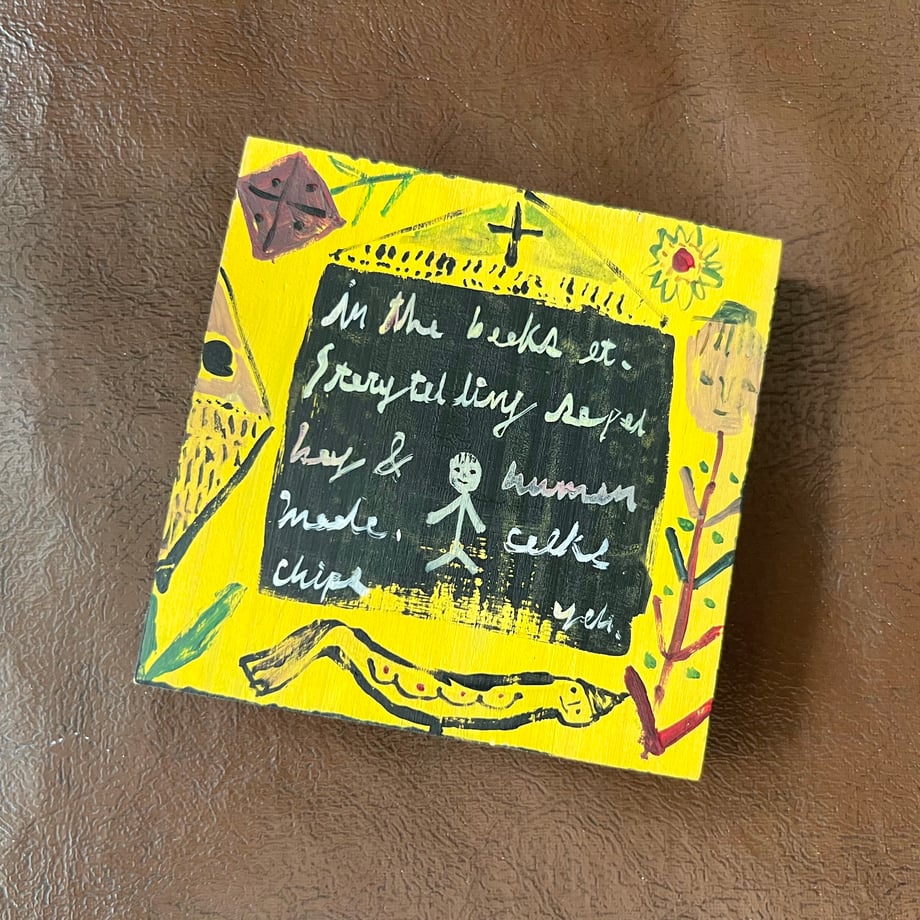 in the books et.
Storytelling
hey & human
made. celks
chips yeh.